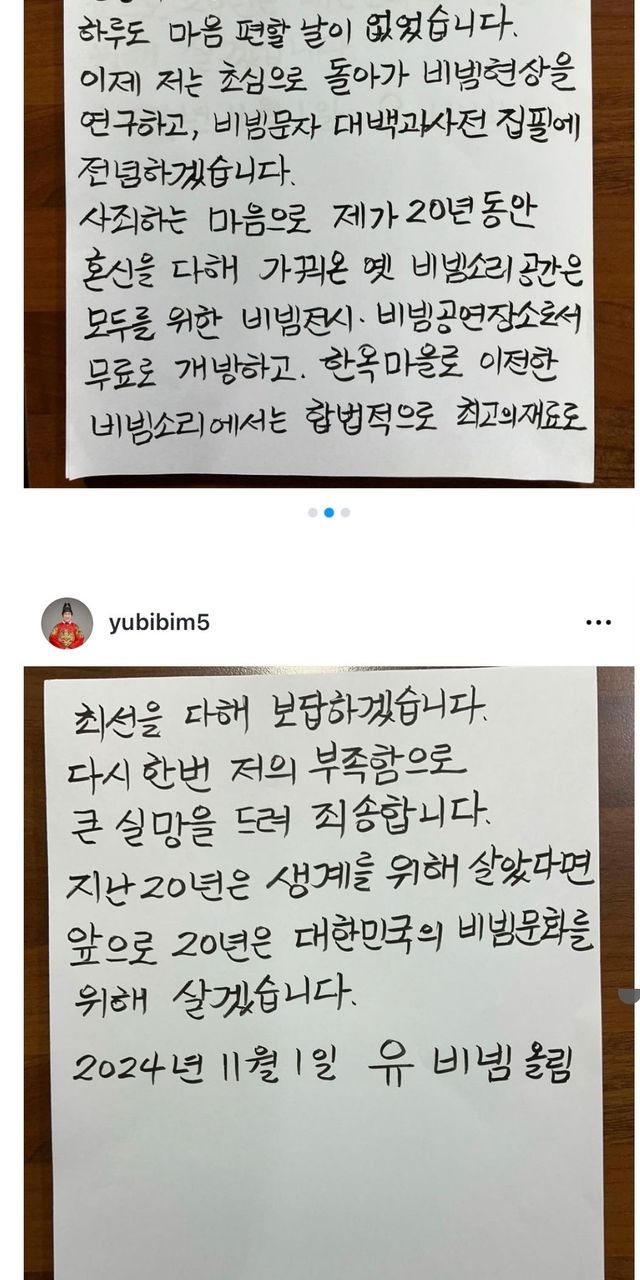 하루도 마음 편할 날이 없었습니다.
이제 저는 초심으로 돌아가 비빔현상을
연구하고, 비빔문자 대백과사전 집필에
전념하겠습니다.
사죄하는 마음으로 제가 20년 동안
혼신을 다해 가꿔온 옛 비빔소리 공간은
모두를 위한 비빔전시·비빔공연장소로서
무료로 개방하고. 한옥마을로 이전한
비빔소리에서는 합법적으로 최고의재료로
yubibim5
최선을 다해 보답하겠습니다.
다시 한번 저의 부족함으로
큰 실망을 드려 죄송합니다.
지난 20년은 생계를 위해 살았다면
앞으로 20년은 대한민국의 비빔문화를
위해 살겠습니다.
2024년 11월 1일 유 비빔 올림